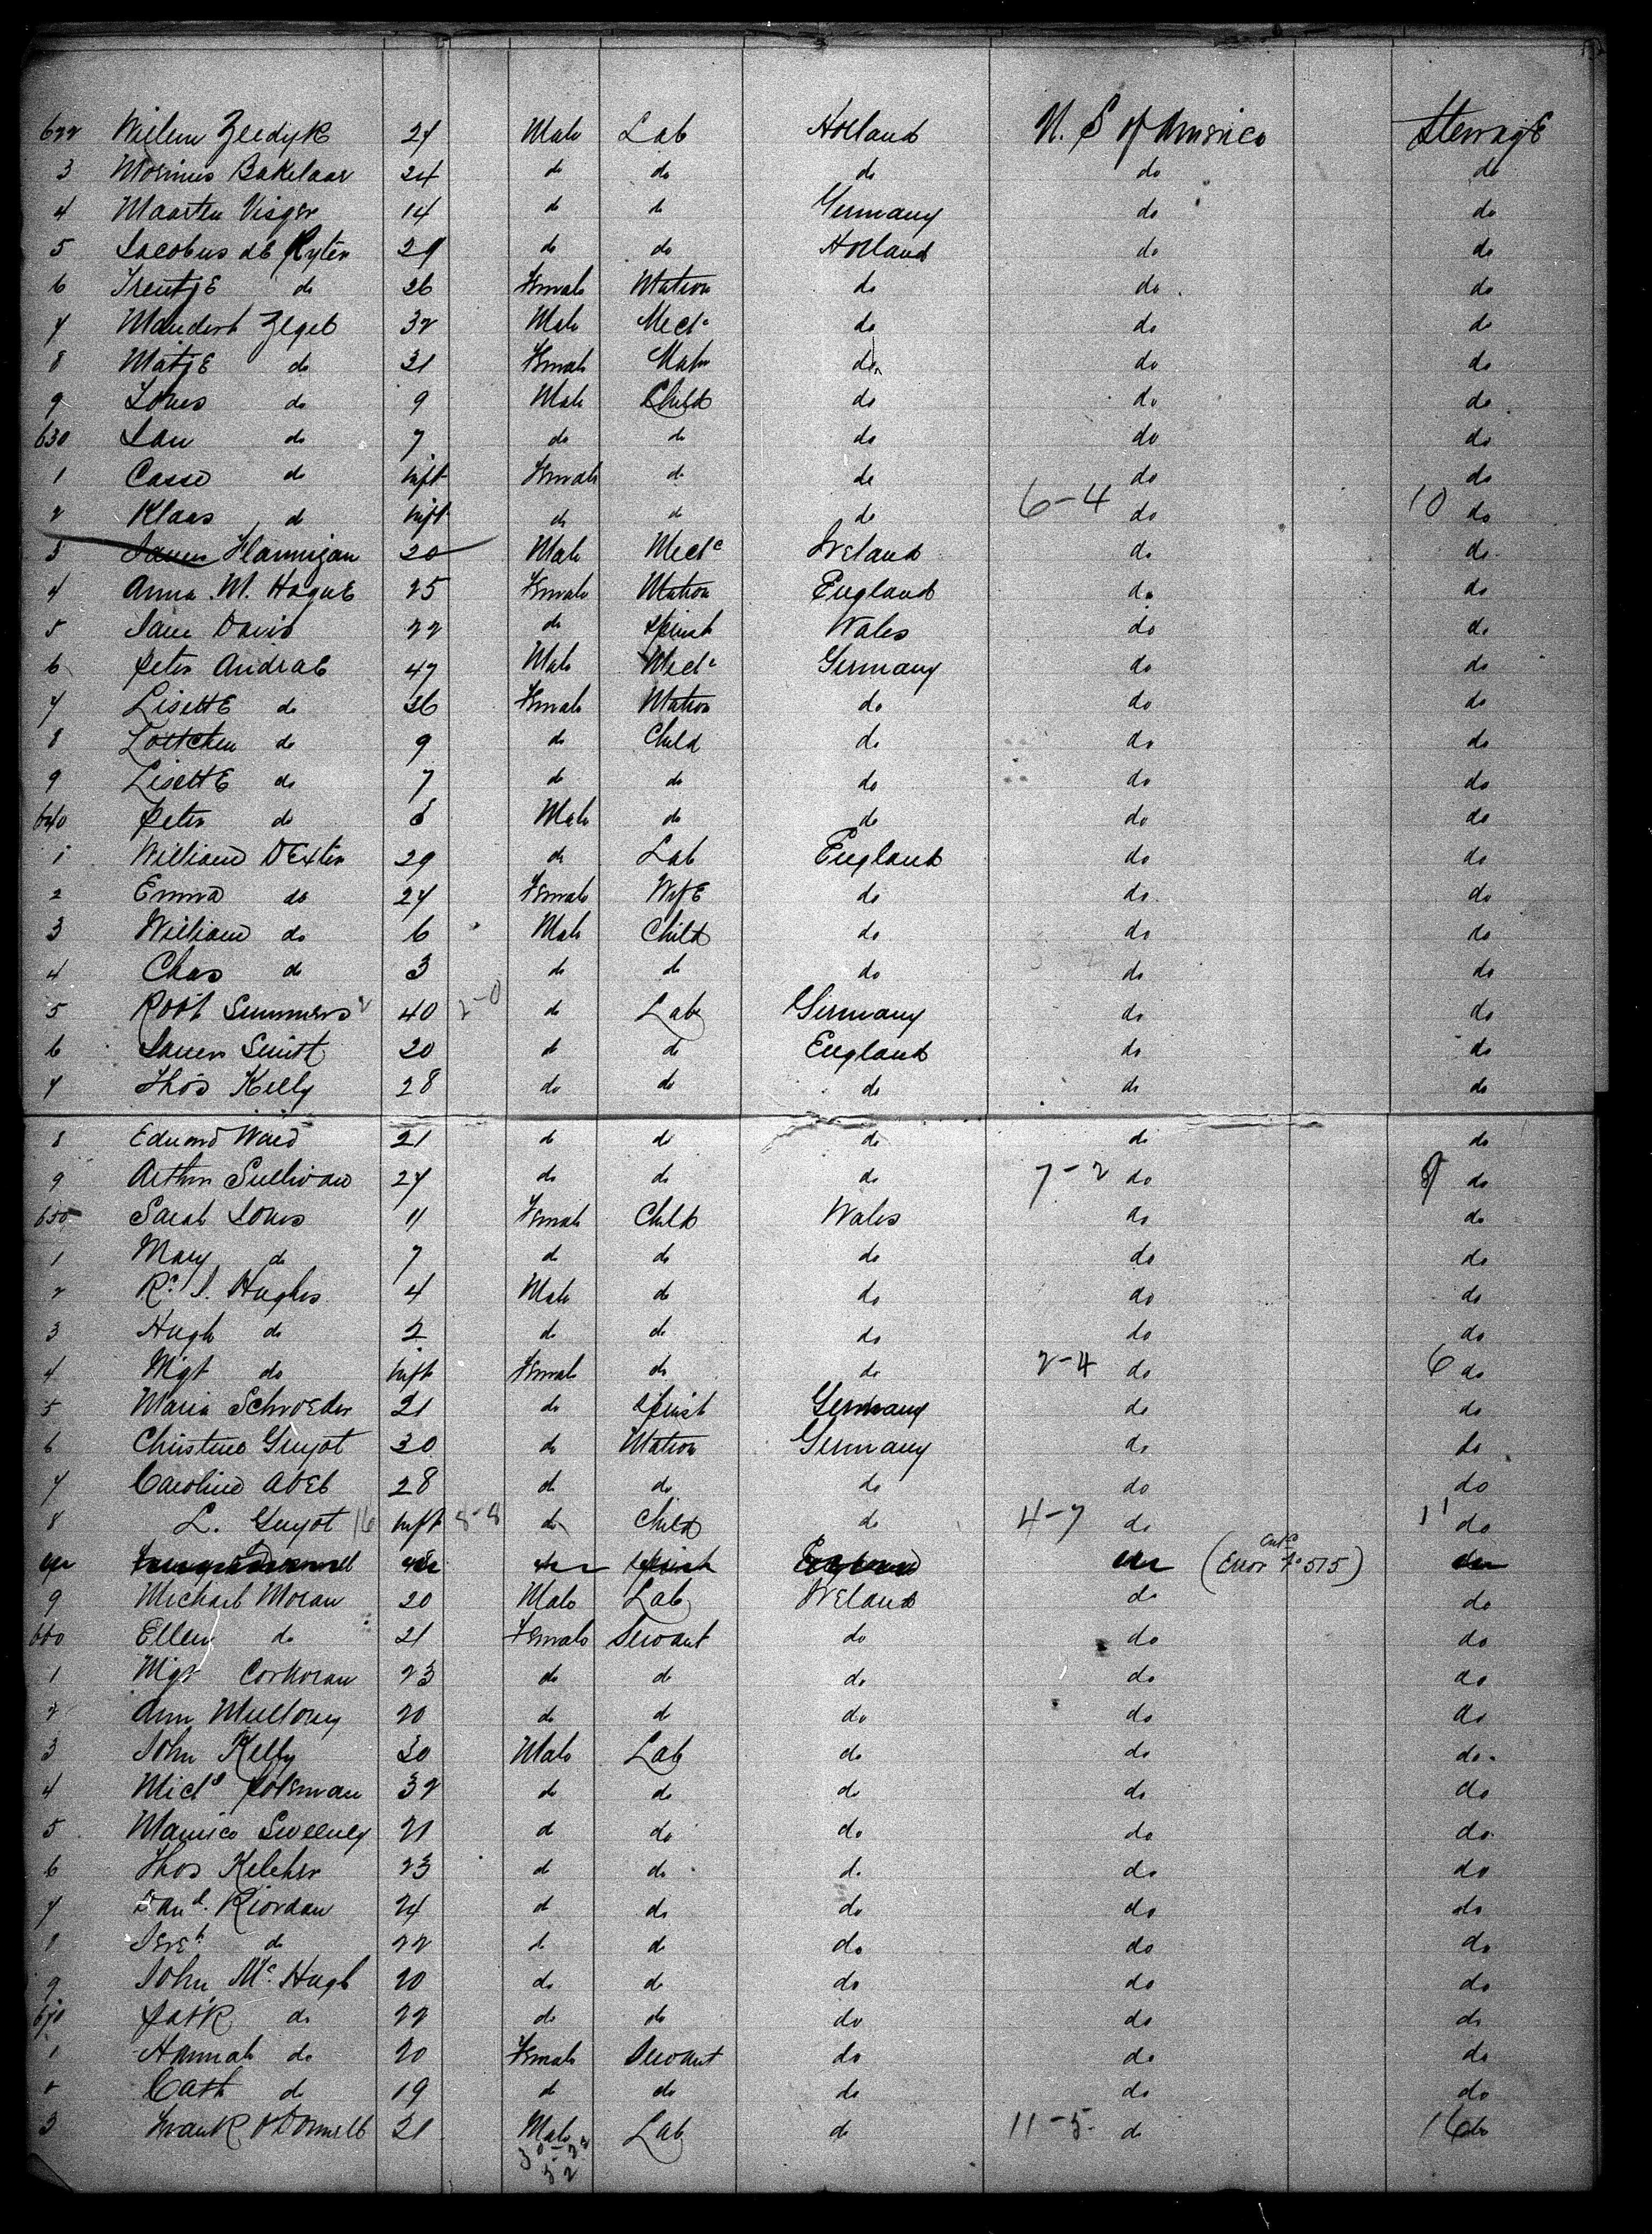 622 Willem Zeedyk 24 Male Lab Holland U. S of America Steerage
3 Morinus Bakelaar 24 do do do do do
4 Maarten Visger 14 do do Germany do do
5 Jacobus de Ryter 29 do do Holland do do
6 Trentje do 26 Female Matron do do do
7 Mandert Zegel 32 Male Mech do do do
8 Matje do 31 Female Matn do do do
9 Jones do 9 Male Child do do do
630 Jan do 7 do do do do do
1 do Inft Female do do do do
2 Klaas do Inft do do do 6-4 do 10 do
3 James Flannigan 20 Male Mechc Ireland do do
4 Anna. M. Hague 25 Female Matron England do do
5 Jane David 22 do Spinst Wales do do
6 Peter Andrae 47 Male Mechc Germany do do
7 Lisette do 36 Female Matron do do do
8 Lottchen do 9 do Child do do do
9 Lisette do 7 do do do do do
640 Peter do Male do do do do
1 William Dexter 29 do Lab England do do
2 Emma do 24 Female Wife do do do
3 William do 6 Male Child do do do
4 Chas do 3 do do do do do
5 Robt Summers 40 2-0 do Lab Germany do do
6 James Smith 20 do do England do do
7 Thos Kelly 28 do do do do do
8 Edward Ward 21 do do do do do
9 Arthur Sullivan 24 do do do 7-2 do 9 do
650 Sarah Jones 11 Female Child Wales do do
1 Mary do 7 do do do do do
2 Rd J. Hughes 4 Male do do do do
3 Hugh do 2 do do do do do
4 Mgt do Inft Female do do 2-4 do 6 do
5 Maria Schroeder 21 do Spinst Germany do do
6 Christine Guyot 30 do Matron Germany do do
7 Caroline Abel 28 do do do do do
8 L. Guyot 16 Inft 8-8 do Child do 4-7 do 11 do
(Error No 515)
9 Michael Moran 20 Male Lab Ireland do do
660 Ellen do 21 Female Servant do do do
1 Mgt Corkoran 23 do do do do do
2 Ann Mullony 20 do do do do do
3 John Kelly 30 Male Lab do do do
4 Michl 32 do do do do do
5 Maurice Sweeney 21 do do do do do
6 Thos Keleher 23 do do do do do
7 Danl. Riordan 24 do do do do do
8 Jereh do 22 do do do do do
9 John McHugh 20 do do do do do
670 Patk do 22 do do do do do
1 Hannah do 20 Female Servant do do do
2 Cath do 19 do do do do do
3 Frank O'Donnell 21 Male Lab do 11-5 do 16 do